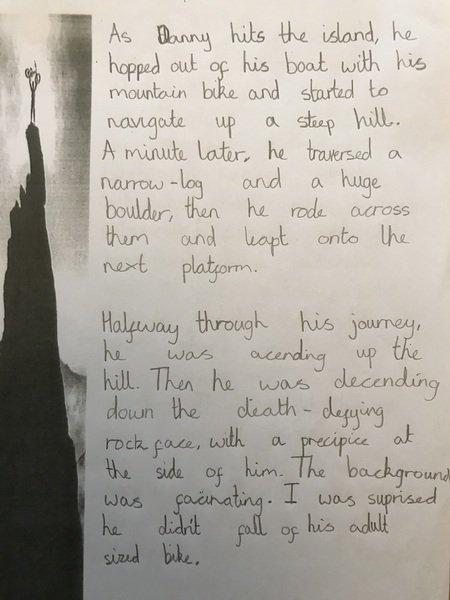 As Danny hits the island, he
hopped out of his boat with his
mountain bike and started to
navigate up a steep hill.
A minute later, he traversed a
narrow-log and a huge
boulder, then he rode across
them and leapt onto the
next platform.
Halfway through his journey,
he was acending up the
hill. Then he was decending
down the death-defying
rock face, with a precipice at
the side of him. The background
was facinating. I was suprised
he didn't fall of his adult
sized bike.